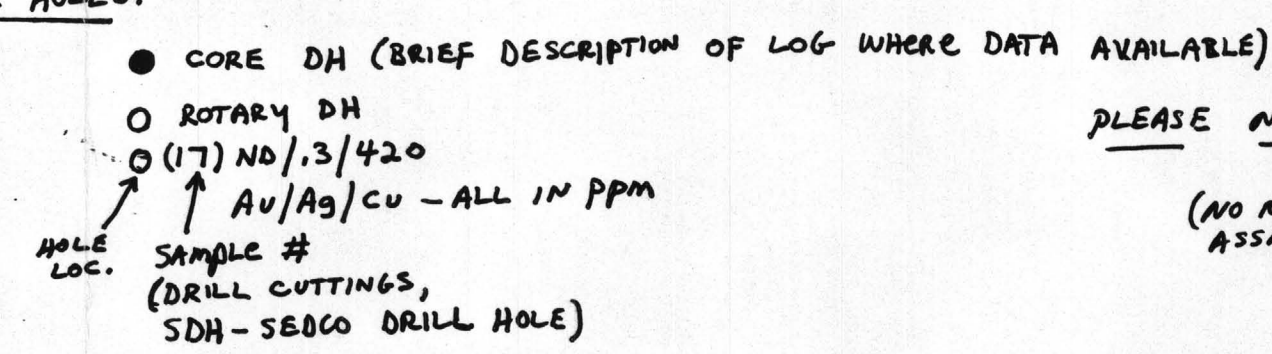 HOLES:
● CORE DH (BRIEF DESCRIPTION OF LOG WHERE DATA AVAILABLE)
○ ROTARY DH
PLEASE
○ (17) ND/.3/420
Au/Ag/Cu - ALL IN PPM
(NO
HOLE LOC.
SAMPLE #
(DRILL CUTTINGS,
SDH - SEDCO DRILL HOLE)